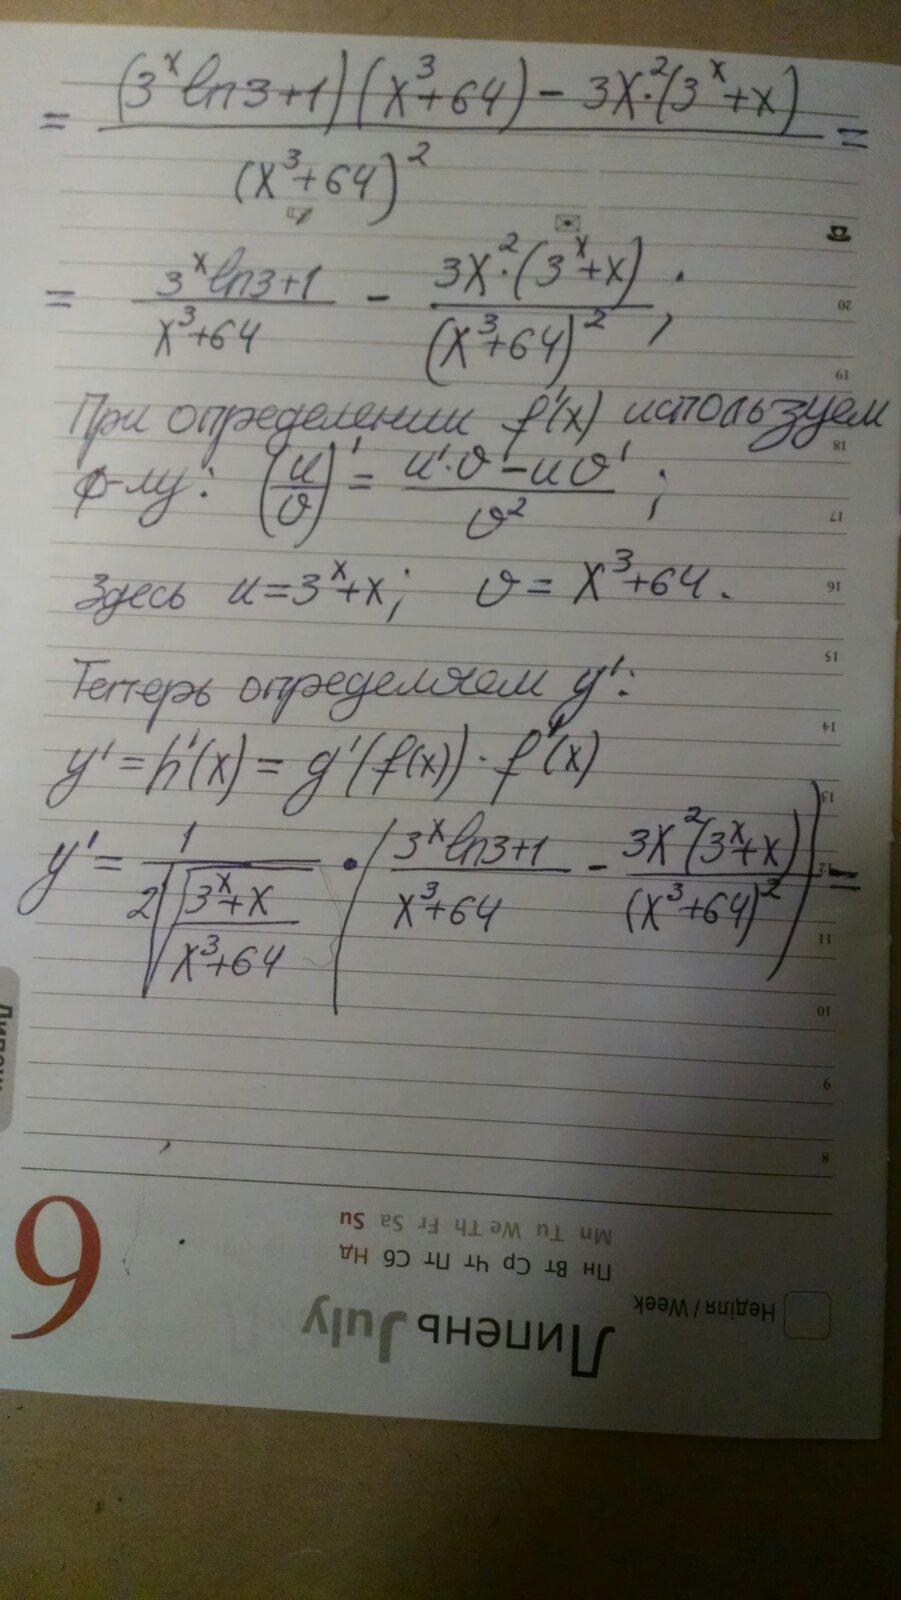 = (3^x ln3+1)(x^3+64) - 3x^2·(3^x+x) / (x^3+64)^2 =
= 3^x ln3+1 / x^3+64 - 3x^2·(3^x+x) / (x^3+64)^2 ;
При определении f'(x) используем
ф-лу: (u/v)' = u'·v - uv' / v^2 ;
Здесь u=3^x+x; v = x^3+64.
Теперь определяем y':
y' = h'(x) = g'(f(x))·f'(x)
y' = 1 / 2√(3^x+x / x^3+64) • (3^x ln3+1 / x^3+64 - 3x^2(3^x+x) / (x^3+64)^2) =
20
19
18
17
16
15
14
13
12
11
10
9
8
9
Липень July
Неділя / Week
Пн Вт Ср Чт Пт Сб Нд
Mn Tu We Th Fr Sa Su